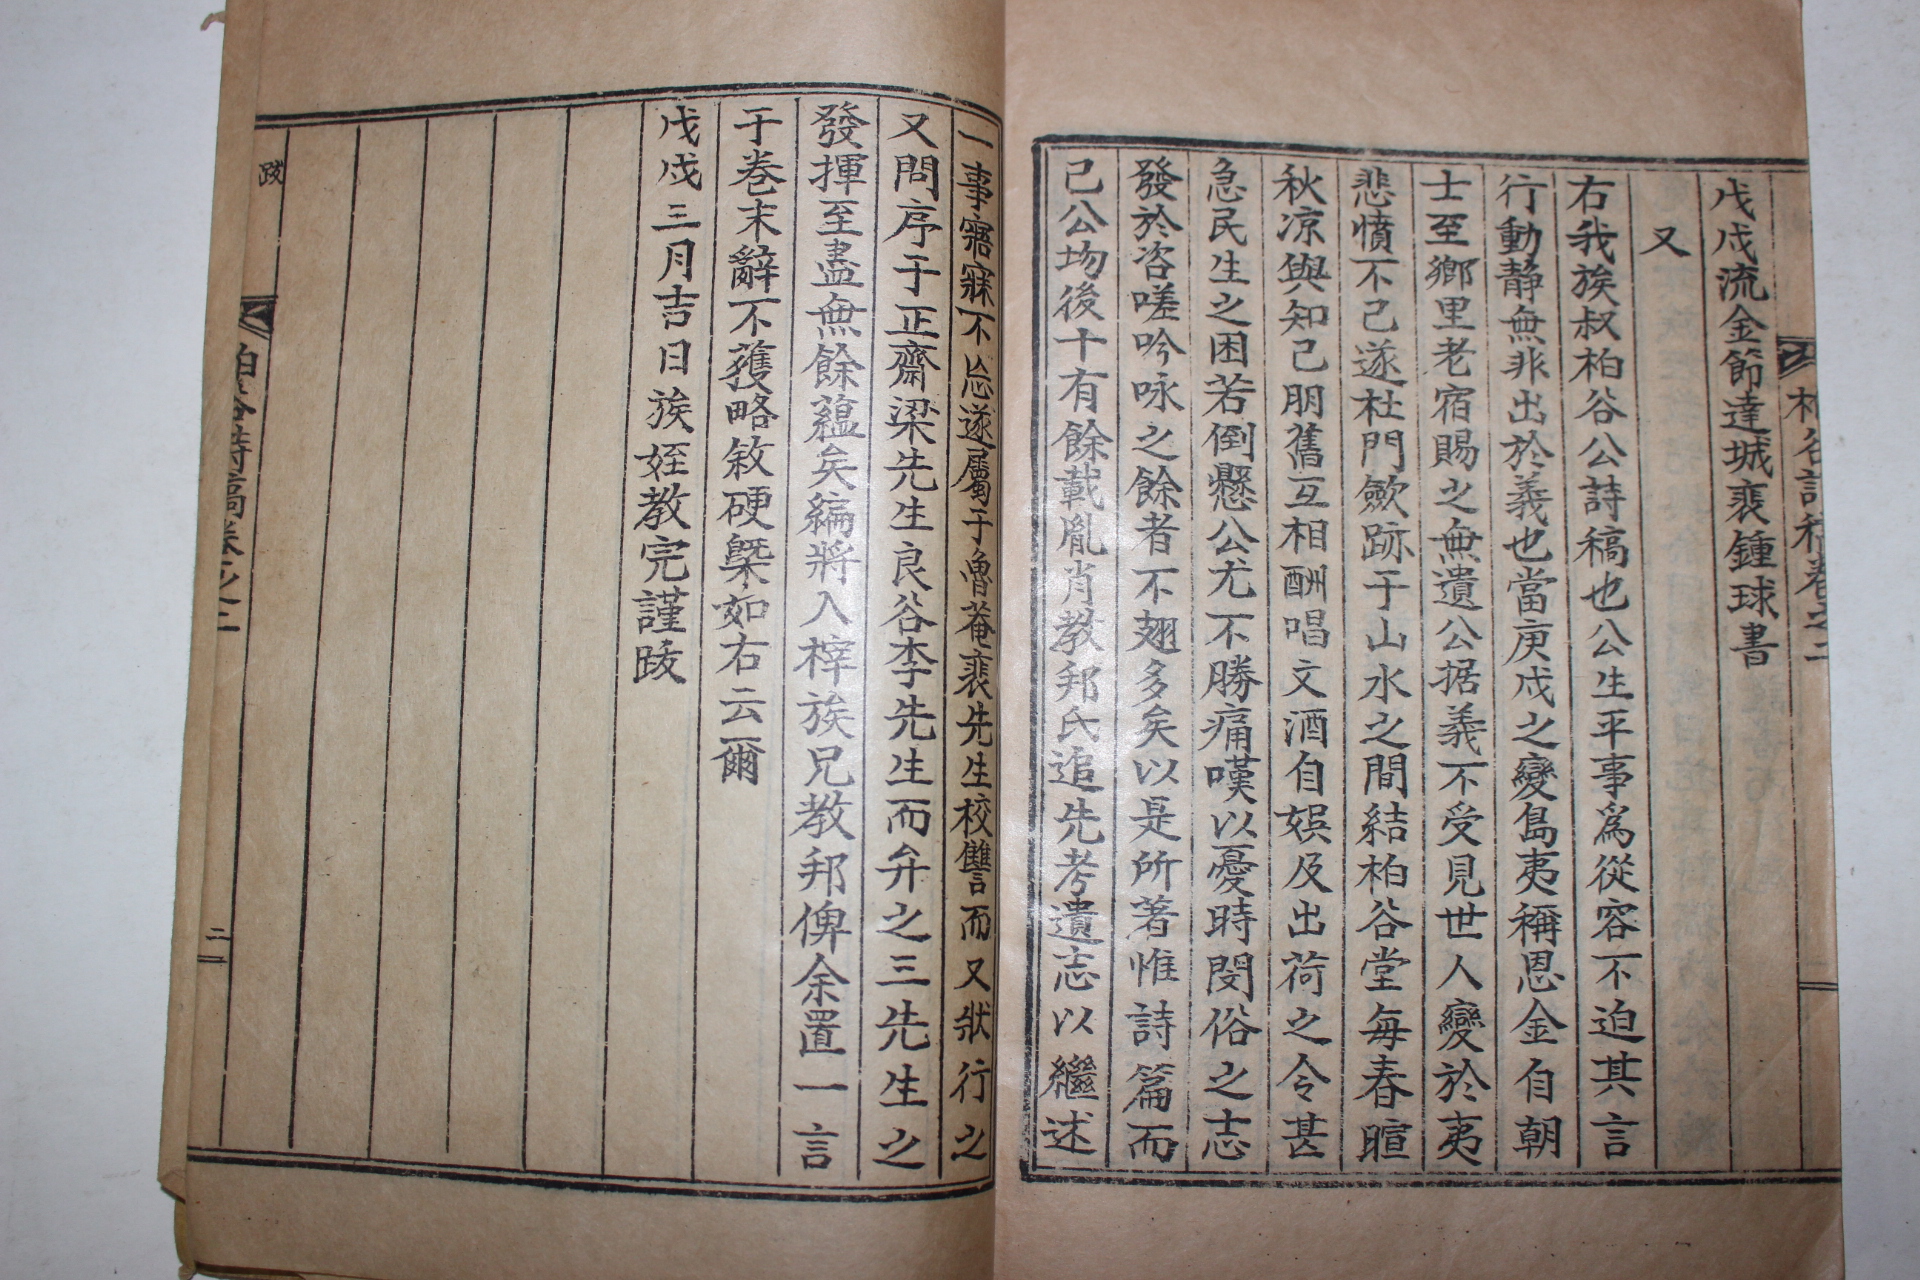 戊戌流金節達城裵鍾球書
又
右我族叔柏谷公詩稿也公生平事爲從容不迫其言
行動靜無非出於義也當庚戌之變島夷稱恩金自朝
士至鄉里老宿賜之無遺公据義不受見世人變於夷
悲憤不己遂杜門斂跡于山水之間結柏谷堂每春暄
秋凉與知己朋舊互相酬唱文酒自娛及出荷之令甚
急民生之困若倒懸公尤不勝痛嘆以憂時閔俗之志
發於咨嗟吟咏之餘者不翅多矣以是所著惟詩篇而
己公歿後十有餘載胤肖教邦氏追先考遺志以繼述
一事寤寐不忘遂屬于魯菴裵先生校讐而又狀行之
又問序于正齋梁先生良谷李先生而弁之三先生之
發揮至盡無餘蘊矣編將入梓族兄教邦俾余置一言
于卷末辭不獲略敘硬槩如右云爾
戊戌三月吉日族姪教完謹跋
跋
柏谷詩稿卷之二
二